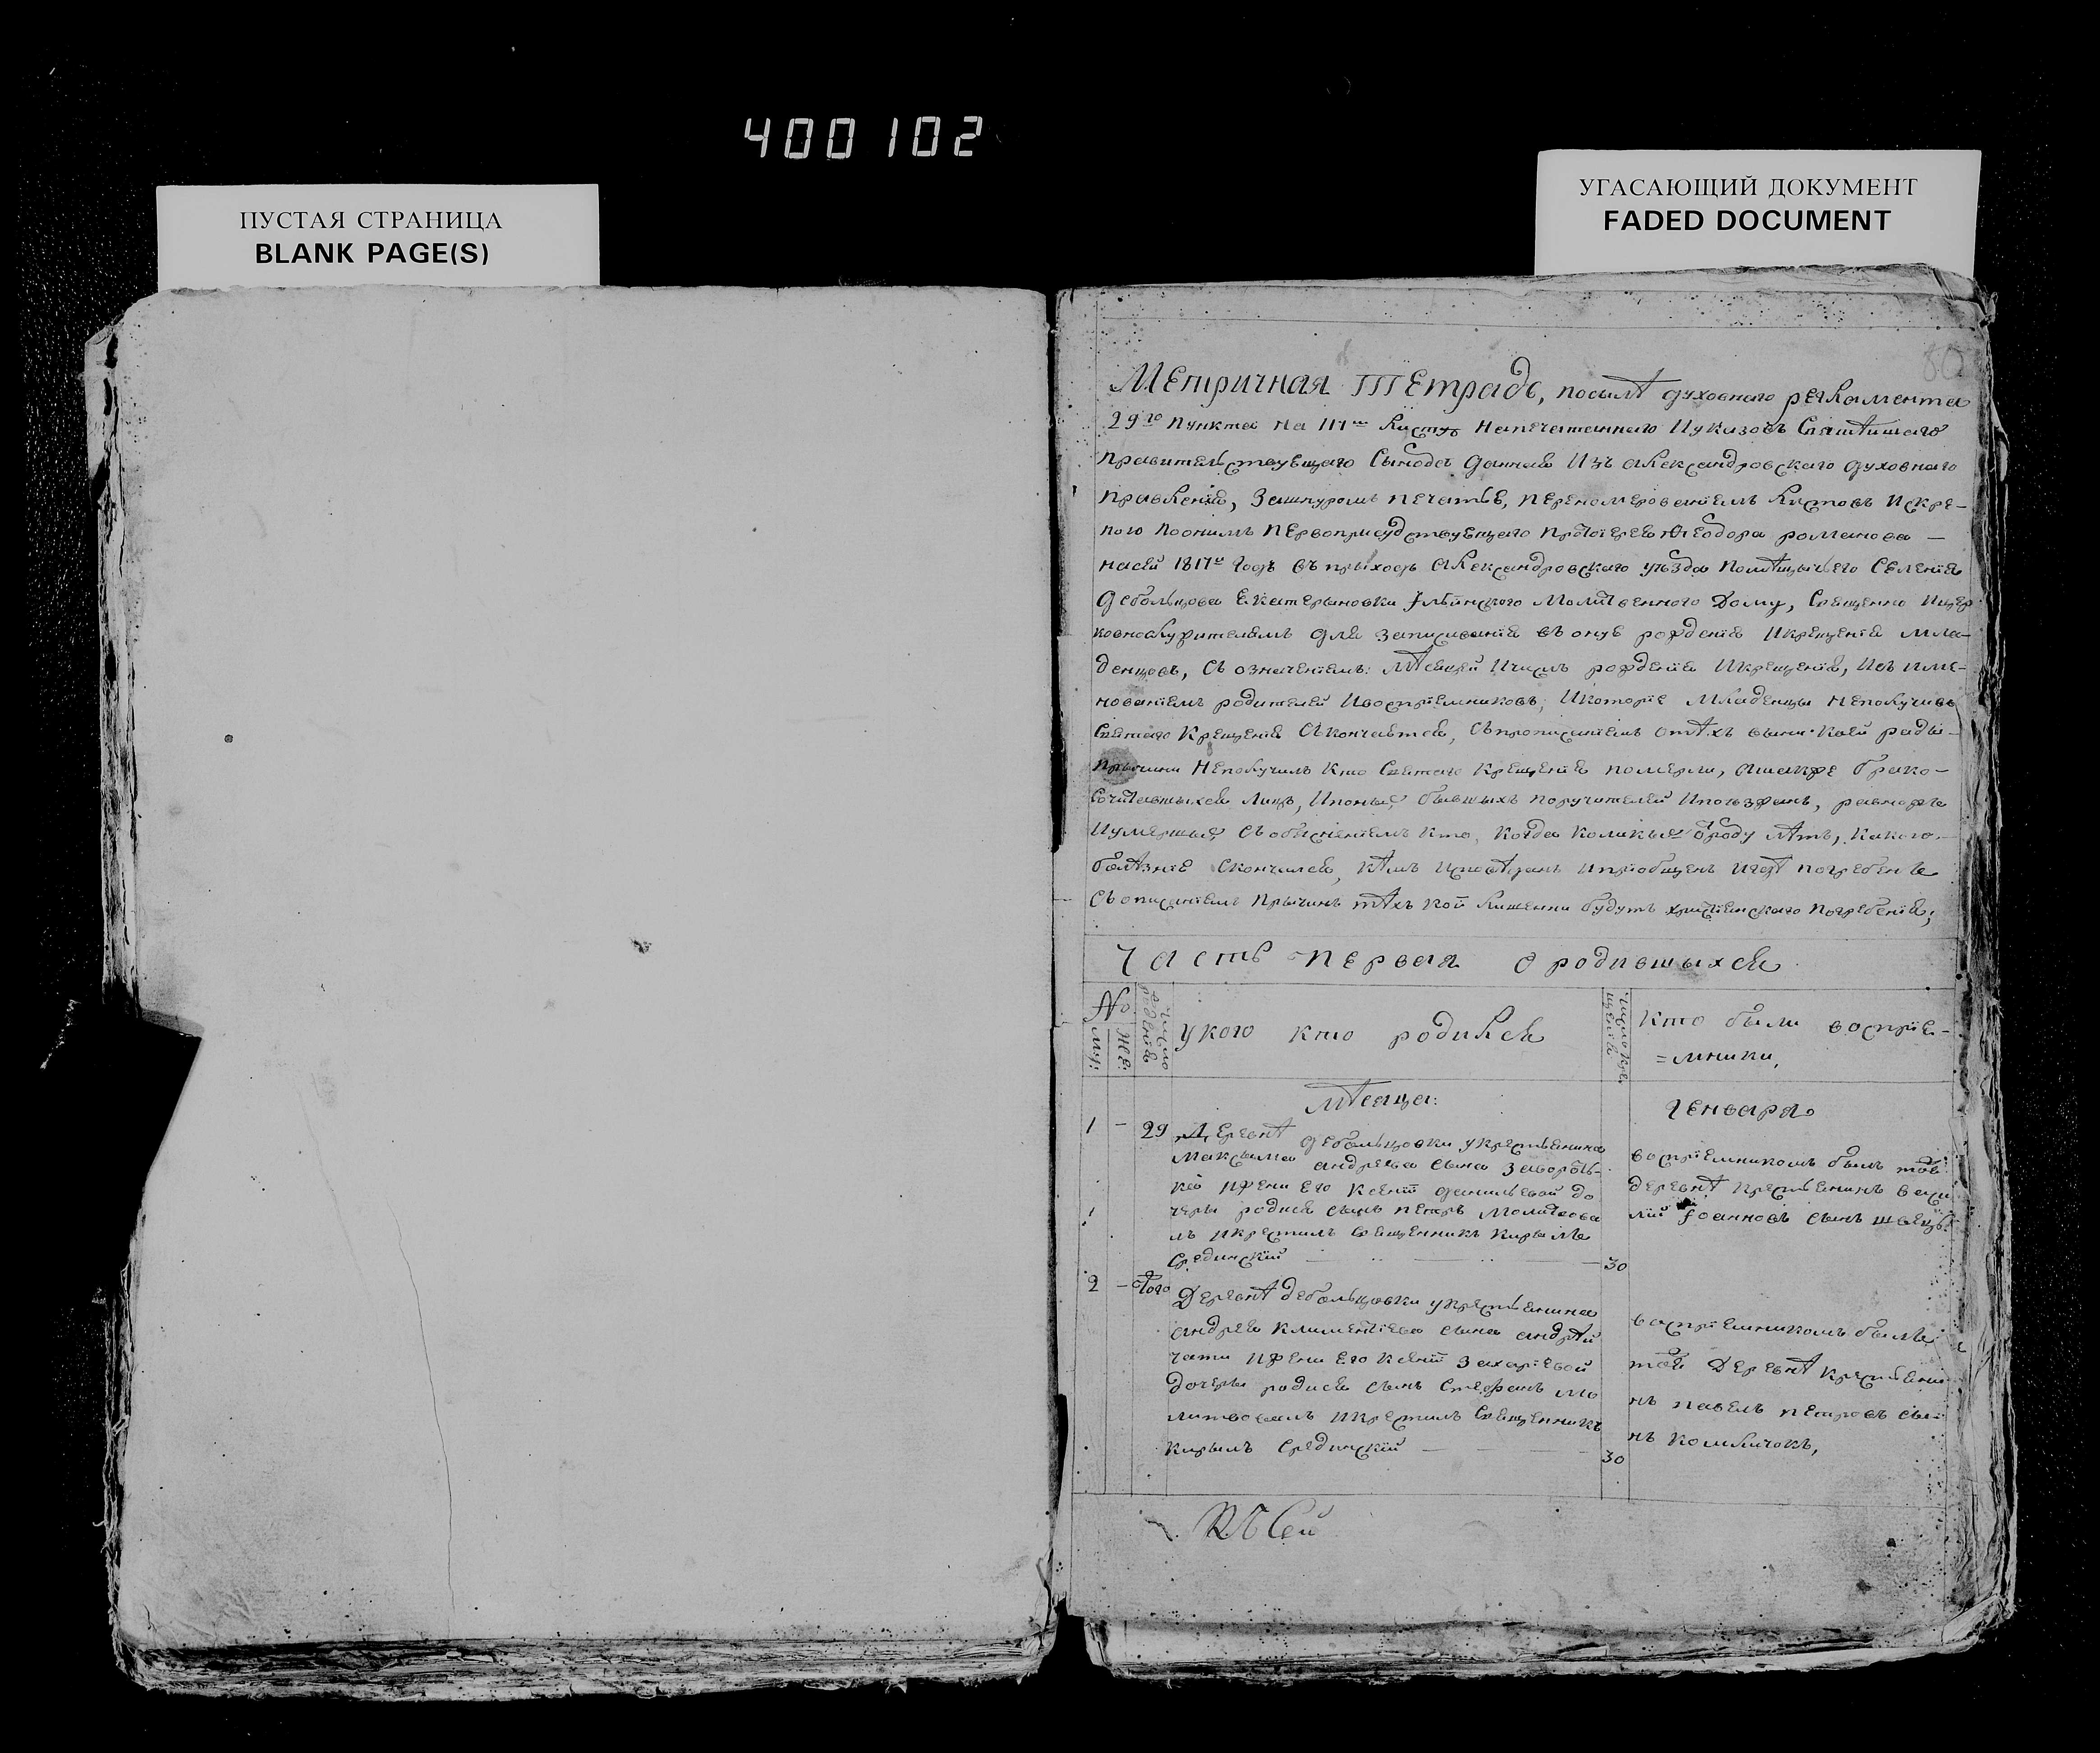 400102
ПУСТАЯ СТРАНИЦА
BLANK PAGE(S)
УГАСАЮЩИЙ ДОКУМЕНТ
FADED DOCUMENT
80
Метричная Тетрадь, посилѣ духовнаго регламента
29го пункта на листу напечатаннаго
правительствующаго Сѵнода данная Изъ александровскаго духовнаго
правленія, Зашнуромъ печатью, перенамерованіемъ листовъ Искре-
пою первоприсудствующаго протоіерея Ѳеодора романова
насей 1817й годъ въ прыходъ александровскаго уѣзда помѣщычьего Селенія
Дебальцова Екатерыновки Ильинского Молитвенного Дому, Священно Ицер
ковнослужителямъ для записыванія въ оную рожденія Икрещенія мла-
денцовъ, съ означеніемъ: мѣсяцей Ичислъ рожденія Икрещенія, Изъ име-
нованіемъ родителей Ивоспріемниковъ, Икоторіе младенцы Неполучивъ
Святаго Крещенія скончаются, съпрописаніемъ
прычини Неполучилъ кто Святаго Крещенія померли, атакже брако-
сочитавшыхся лицъ, Ипоныхъ бывшыхъ поручителей Ипоѣзжанъ, равноже
Иумершыхъ съобясненіемъ кто, когда лѣтъ, какою
болѣзнію Скончался, кѣмъ Исповѣданъ Ипріобщенъ Игдѣ погребенъ
Съописаніемъ прычинъ тѣхъ кои лишенни будутъ христіянскаго погребенія;
Часть первая о родившыхся
№
му:
же:
число рожденія
укого кто родился
число кре-
щенія
кто были воспріе-
=мники,
мѣсяца:
генваря
1 — 29 Деревнѣ дебальцовки укрестьянина
максыма андреева сына
ки ижени его ксеніи данильевой до
черы родися сынъ петръ молитвова
лъ икрестилъ священникъ кирылъ
Срединскій
30
воспріемникомъ былъ тоя
деревнѣ крестьянинъ васи
лій Іоанновъ сынъ швецъ
2 — того Деревнѣ дебальцовки укрестьянина
андрея климентіева сына андрѣй
чати ижени его ксеніи захаріевой
дочеры родися сынъ Стефанъ мо
литвовалъ икрестилъ священникъ
кирылъ Срединскій
30
воспріемникомъ былъ
тоя Деревнѣ крестьяни
нъ павелъ петровъ сы
нъ комличокъ,